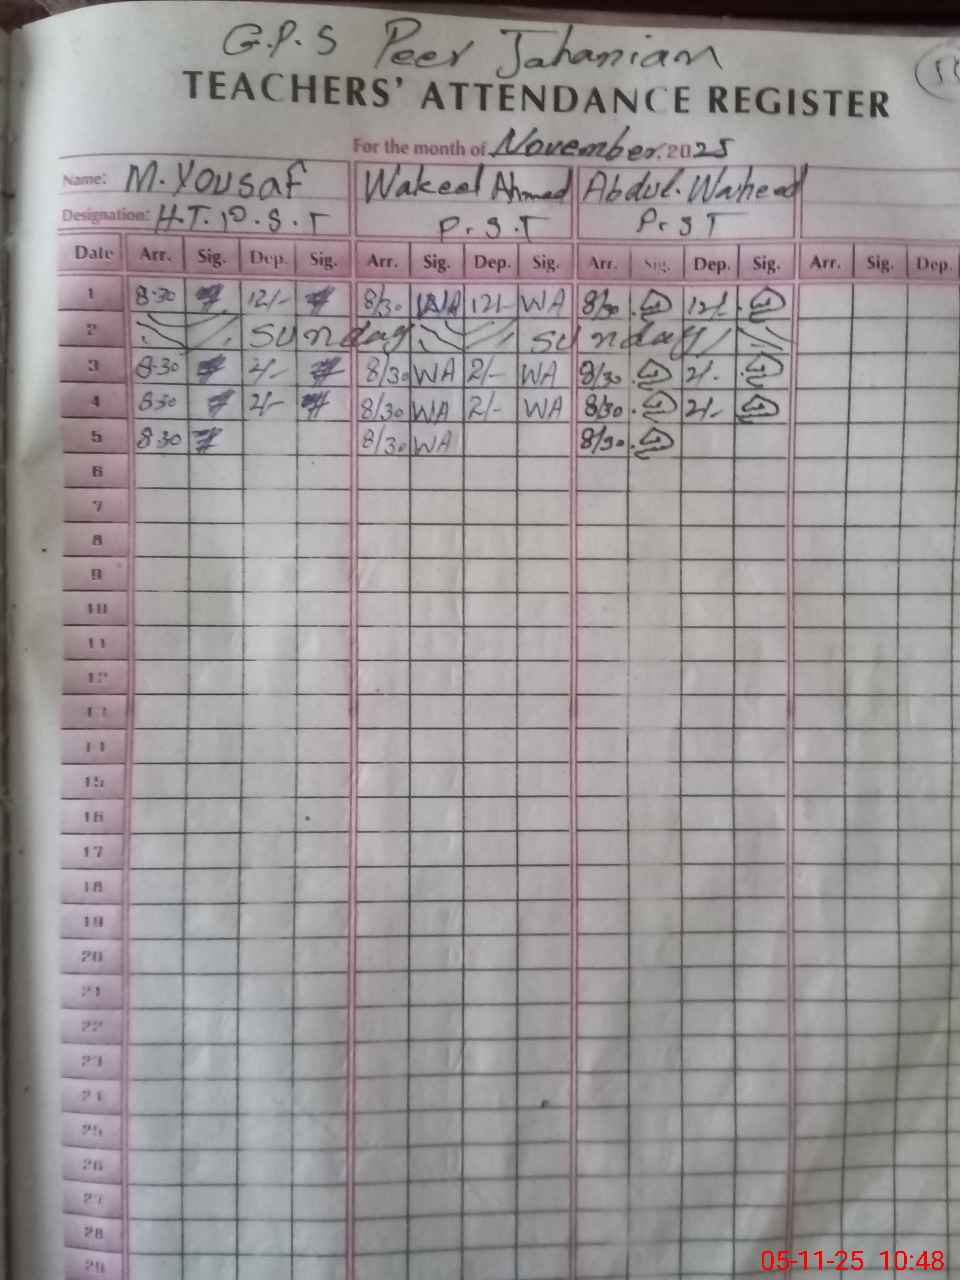 G.P.S Peer Jahaniam
TEACHERS' ATTENDANCE REGISTER
For the month of November. 2025
Name: M. Yousaf Wakeel Ahmad Abdul. Waheed
Designation: H.T. P.S.T P.S.T P.S T
Date Arr. Sig. Dep. Sig. Arr. Sig. Dep. Sig. Arr. Sig. Dep. Sig. Arr. Sig. Dep.
1 8-30 12/- 8/30 WA 12/- WA 8/30 12/-
2 Sunday Sunday
3 8-30 2/- 8/30 WA 2/- WA 8/30 2/-
4 830 2/- 8/30 WA 2/- WA 8/30 2/-
5 830 8/30 WA 8/30
6
7
8
9
10
11
12
13
14
15
16
17
18
19
20
21
22
23
24
25
26
27
28
29
05-11-25 10:48